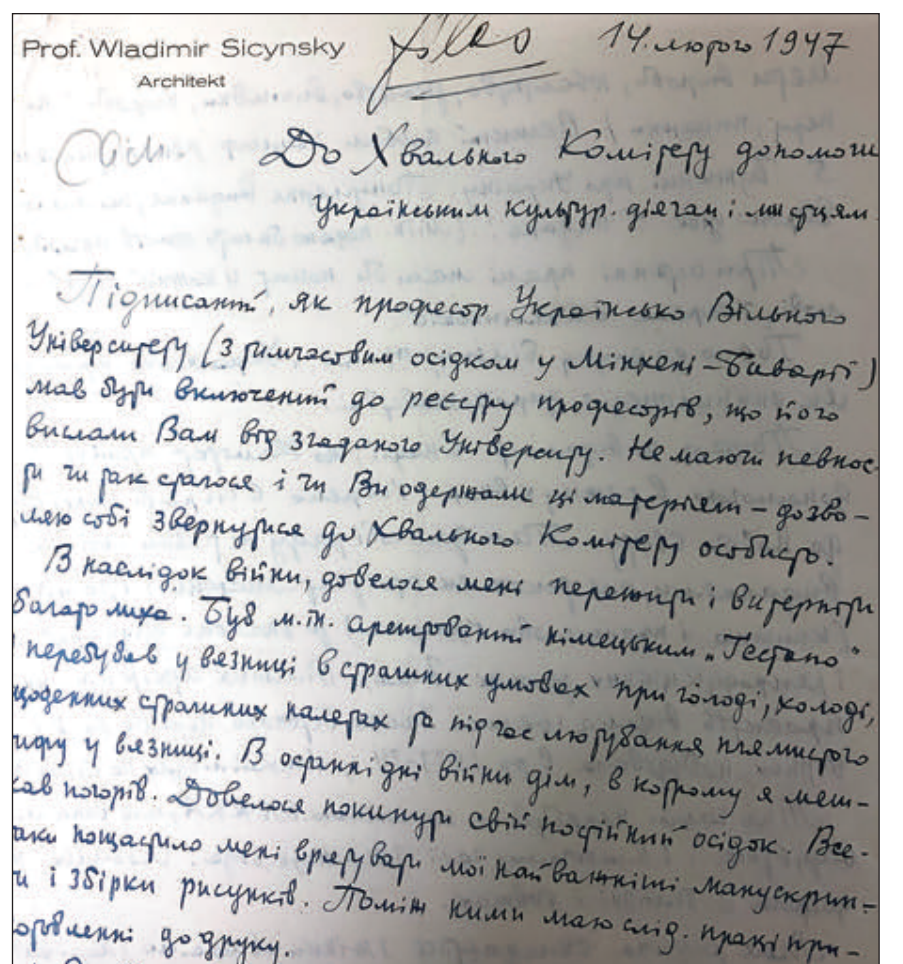 Prof. Wladimir Sicynsky
Architekt
14. лютого 1947
До Хвального Комітету допомоги
Українським культур. діячам і мистцям.
Підписаний, як професор Українсько Вільного
Університету (з тимчасовим осідком у Мінхені-Баварії)
мав бути включений до реєстру професорів, що його
вислали Вам від згаданого Університу. Не маючи певнос-
ти чи так сталося і чи Ви одержали ці матеріяли – дозво-
ляю собі звернутися до Хвального Комітету особисто.
В наслідок війни, довелося мені пережити і витерпіти
багато лиха. Був м.ін. арештований німецьким „Гестапо"
і перебував у вязниці в страшних умовах при голоді, холоді,
щоденних страшних налетах та підчас лютування плямистого
тифу у вязниці. В останні дні війни дім, в котрому я меш-
кав погорів. Довелося покинути свій постійний осідок. Все-
таки пощастило мені врятувати мої найважніші манускрип-
ти і збірки рисунків. Поміж ними маю слід. праці при-
отовленні до друку.